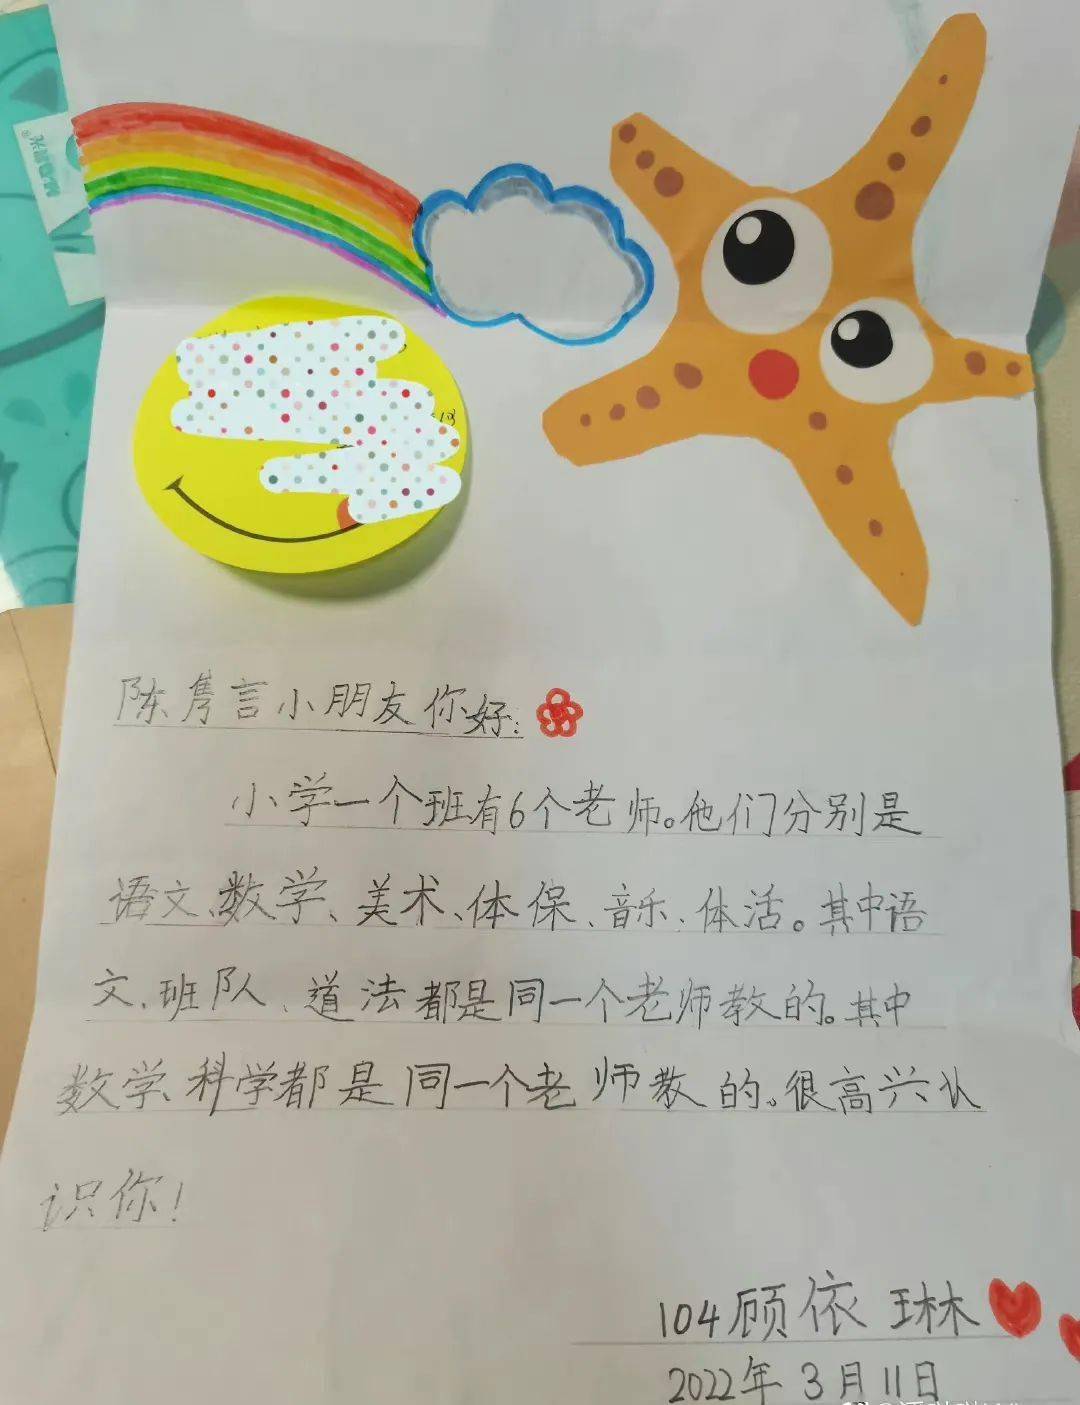 陈隽言小朋友你好:
小学一个班有6个老师。他们分别是
语文、数学、美术、体保、音乐、体活。其中语
文、班队、道法都是同一个老师教的。其中
数学、科学都是同一个老师教的。很高兴认
识你!
104顾依琳
2022年3月11日